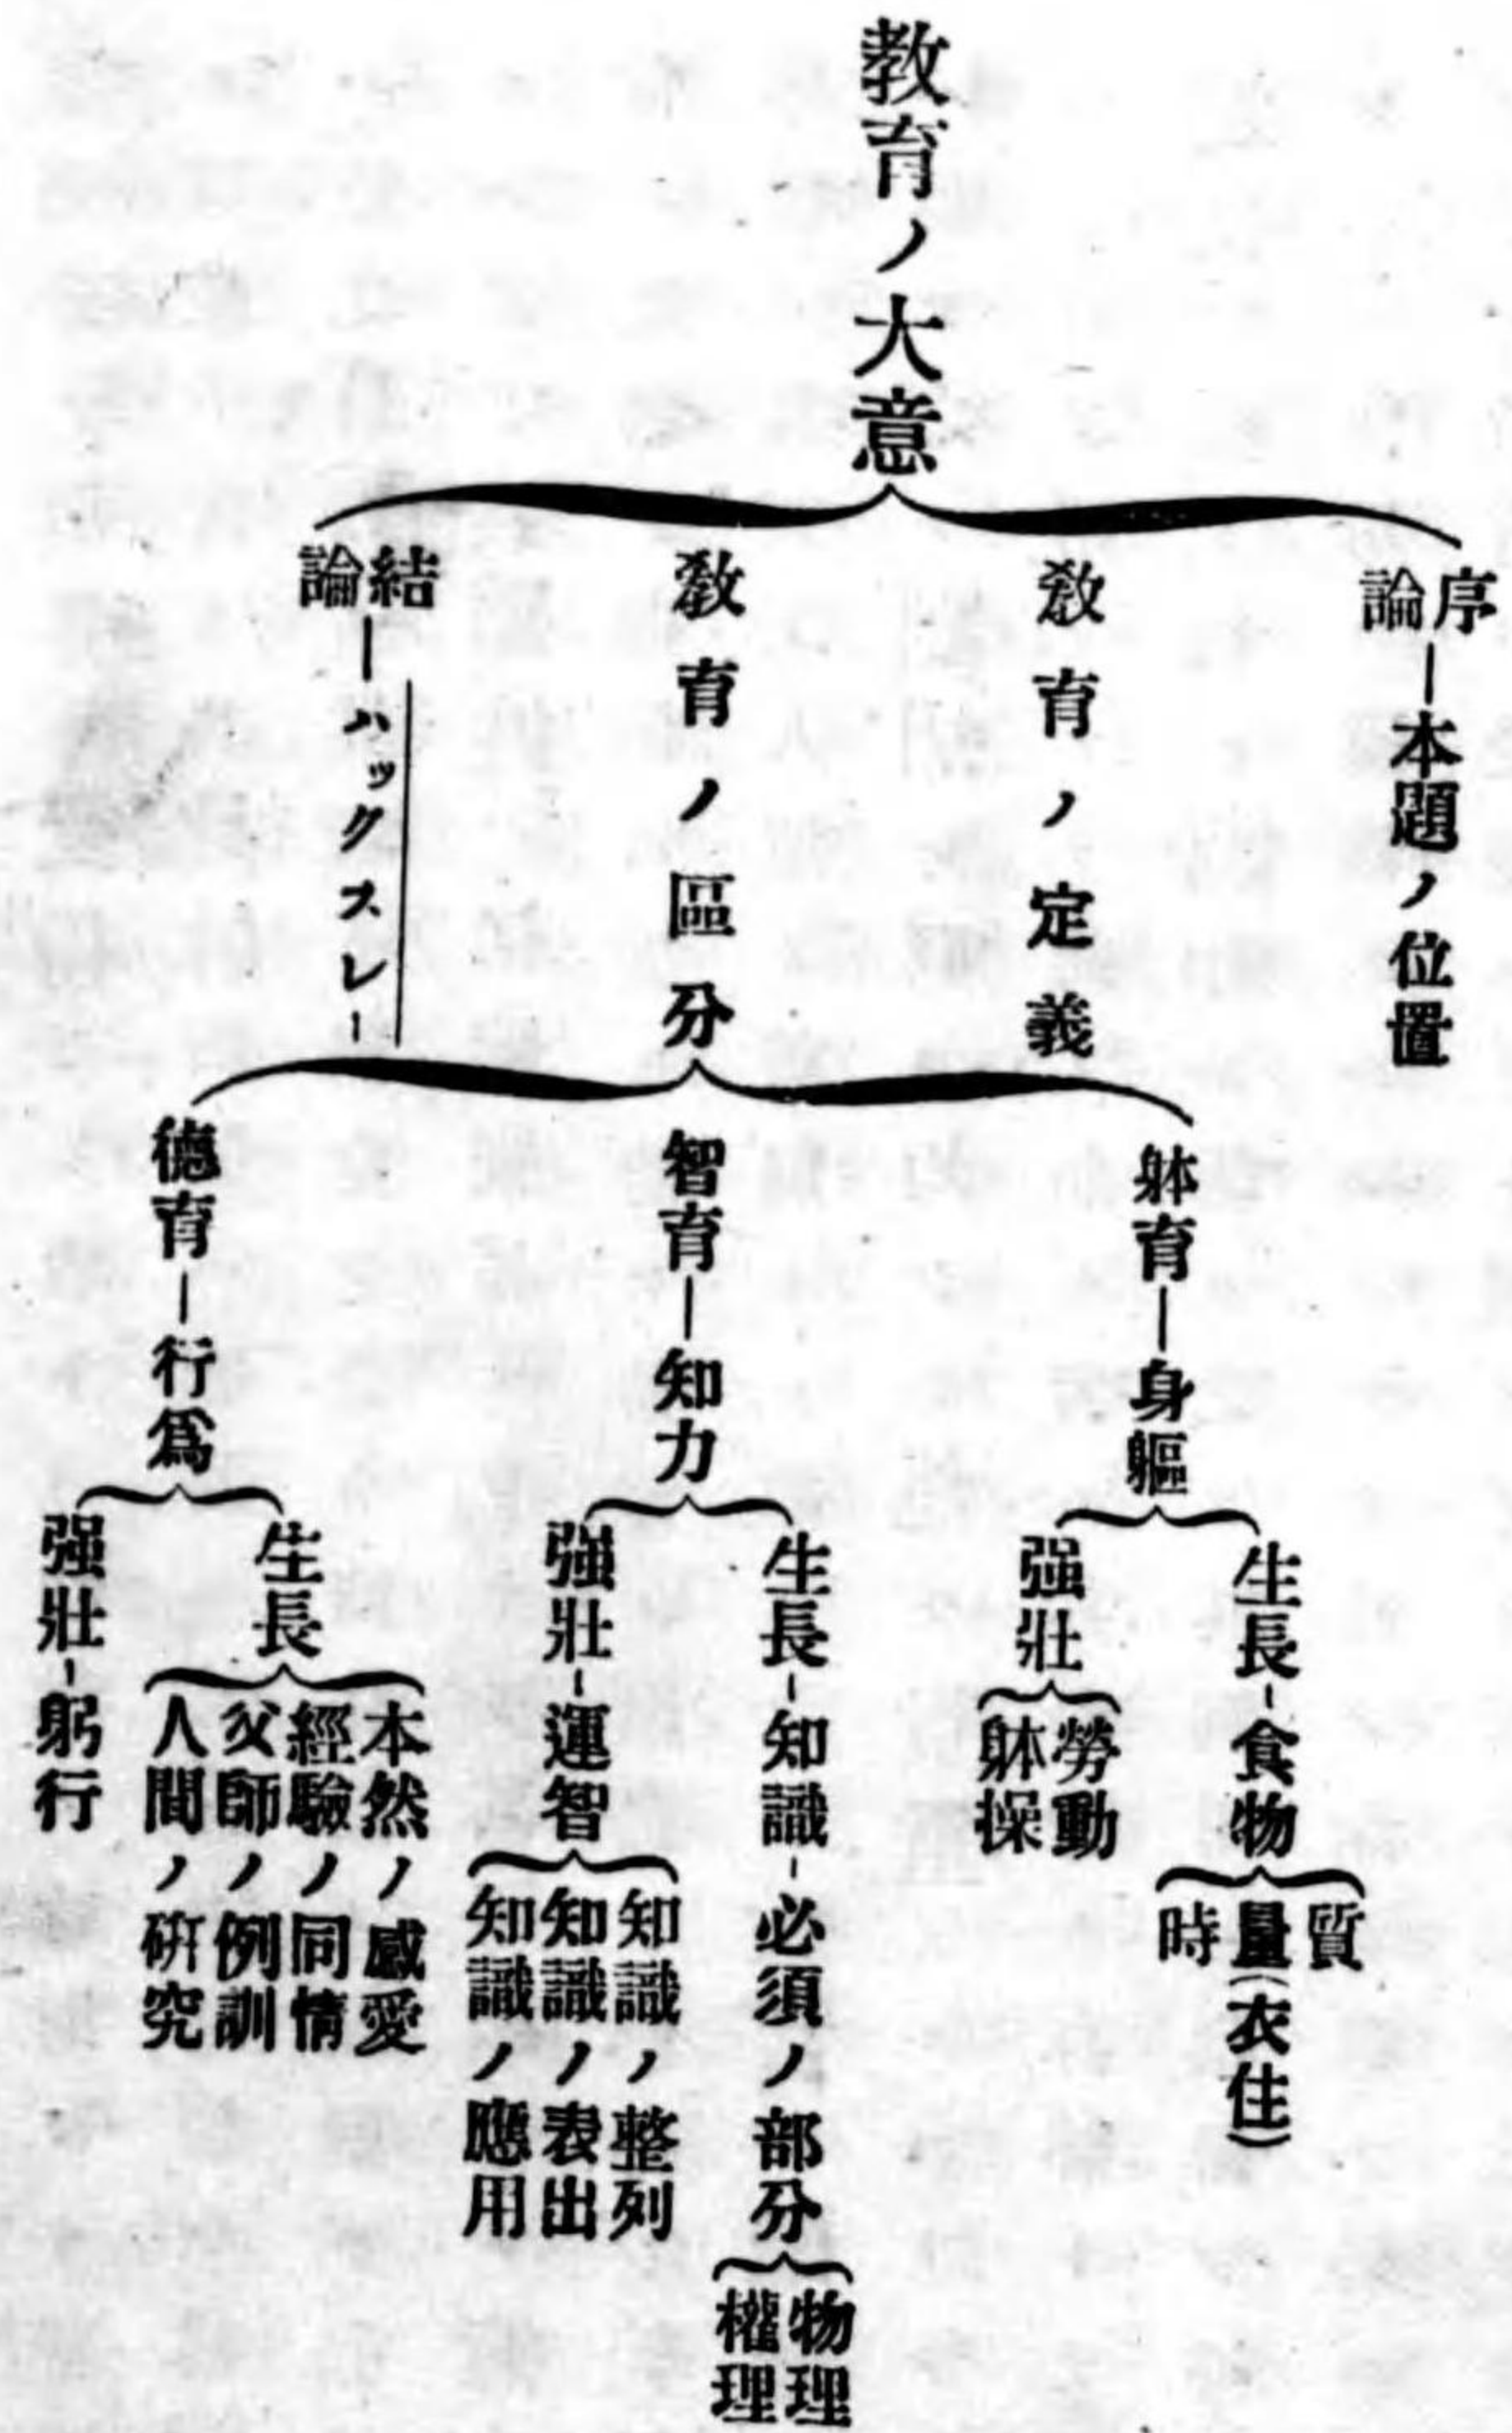 教育ノ大意
序論―本題ノ位置
教育ノ定義
教育ノ區分
結論―ハックスレー
躰育―身軀
生長―食物
質
量(衣住)
時
强壯
勞動
躰操
智育―知力
生長―知識―必須ノ部分
物理
權理
强壯―運智
知識ノ整列
知識ノ表出
知識ノ應用
德育―行爲
生長
本然ノ感愛
經驗ノ同情
父師ノ例訓
人間ノ硏究
强壯―躬行